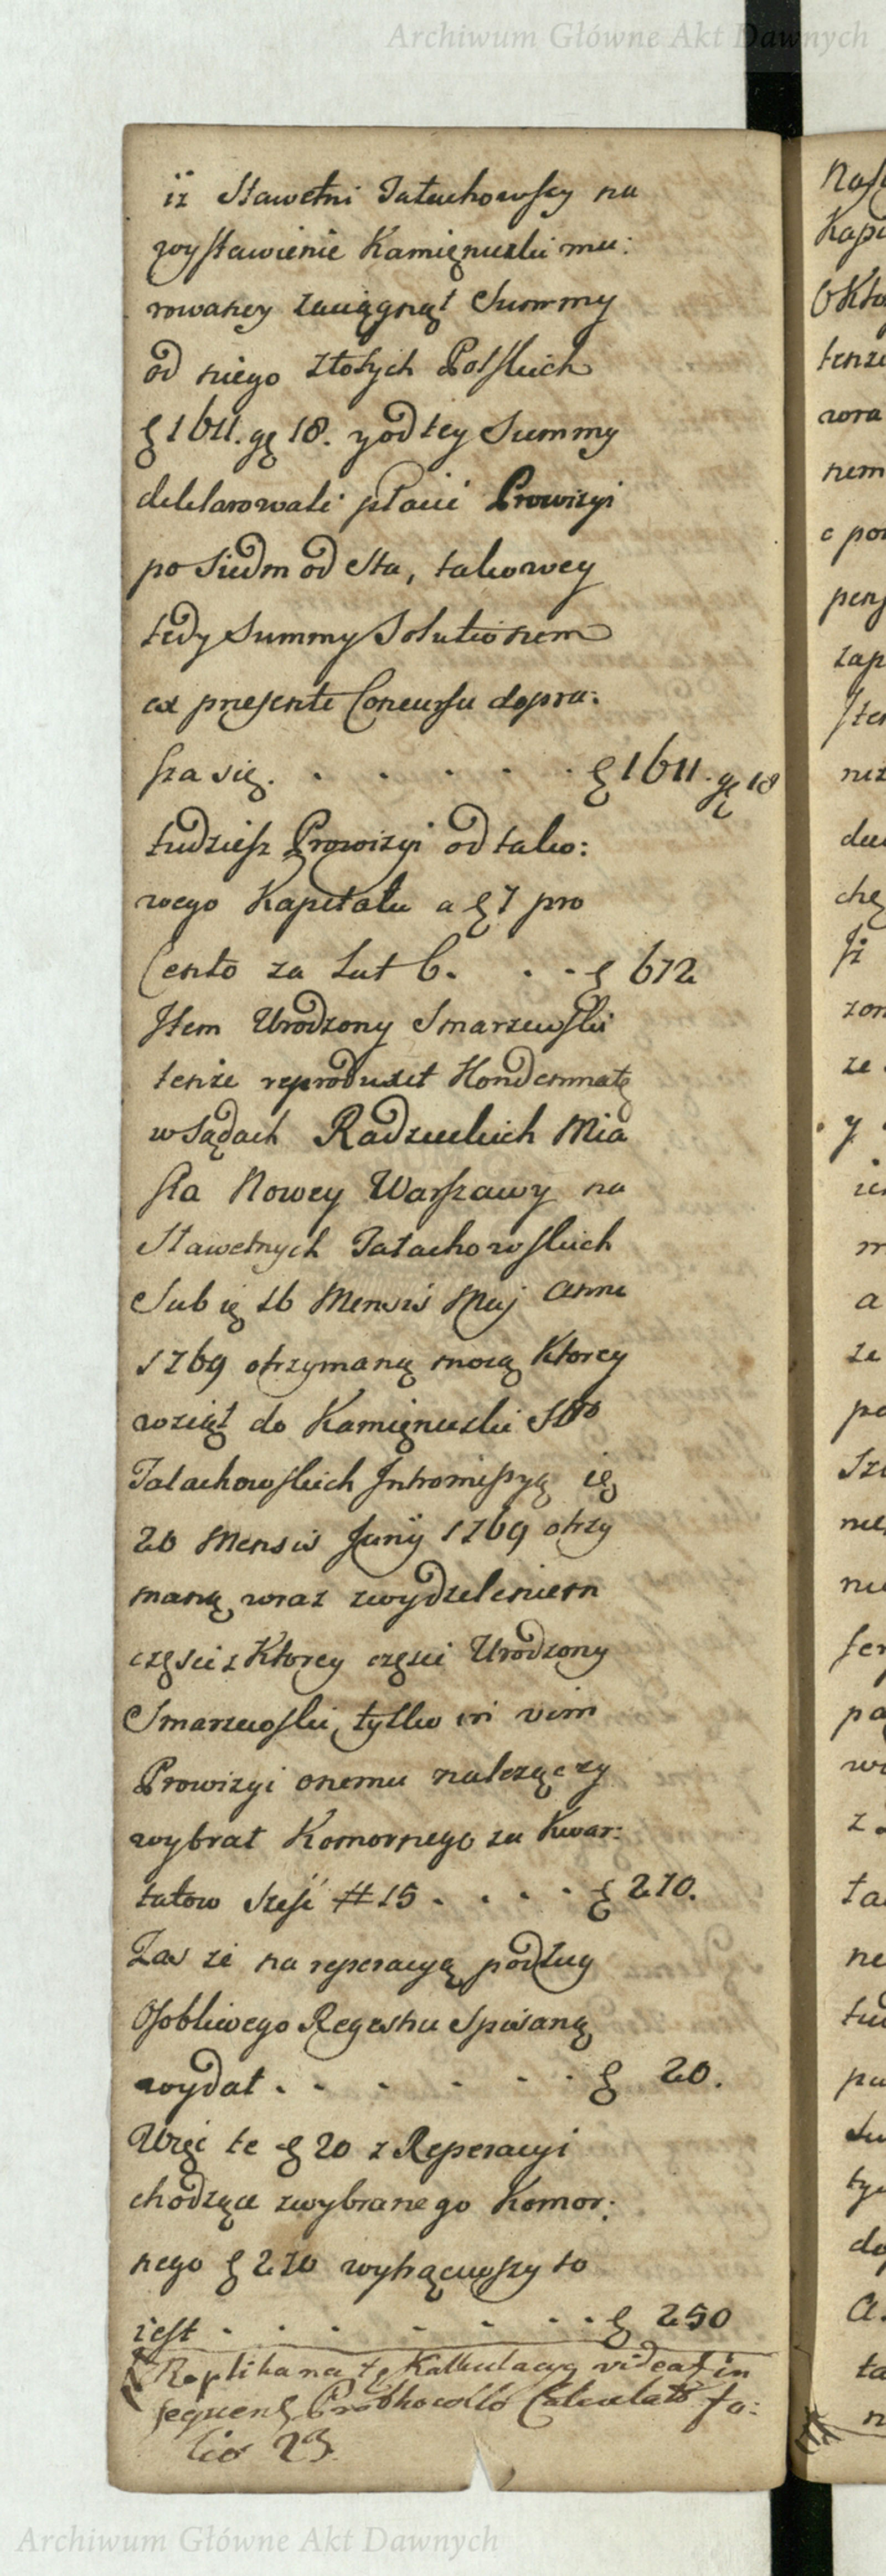 Archiwum Główne Akt Dawnych
iż Sławetni Tałachowscy na
wystawienie Kamięniczki mu:
rowaney zaciągnął Summy
od niego złotych Polskich
1611. gę 18. y od tey Summy
deklarowali płacić Prowizyi
po Siedm od Sta, takowey
tedy Summy Solutionem
ex presente Concursu dopra:
sza się. . . . . . . 1611. gę 18
tudziesz Prowizyi od tako:
wego Kapitału a 7 pro
Cento za Lat 6. . . 672
Item Urodzony Smarzewski
tenże reproduxit Kondemnatę
w Sądach Radzieckich Mia
sta Nowey Warszawy na
Sławetnych Tałachowskich
Sub ię 16 Mensis Maij Anni
1769 otrzymaną mocą Ktorey
wziął do Kamięniczki Sttо
Tałachowskich Intromissyą ię
20 Mensis Junij 1769 otrzy
maną wraz z wydzeleniem
częsci z Ktorey częsci Urodzony
Smarzewski, tylko in vim
Prowizyi onemu należączy
wybrał Komornego za Kwar:
tałow Sześć # 15 . . . . 270.
Zas że na reperacyą podług
Osobliwego Regestru Spisaną
wydał . . . . . . 20.
Więc te 20 z Reperacyi
chodzące z wybranego Komor:
nego 270 wytrącuwszy to
iest . . . . . . . 250
Replika na tę Kalkulacyą videat in
sequen Prothocollo Calculato fo:
lio 23.
Archiwum Główne Akt Dawnych